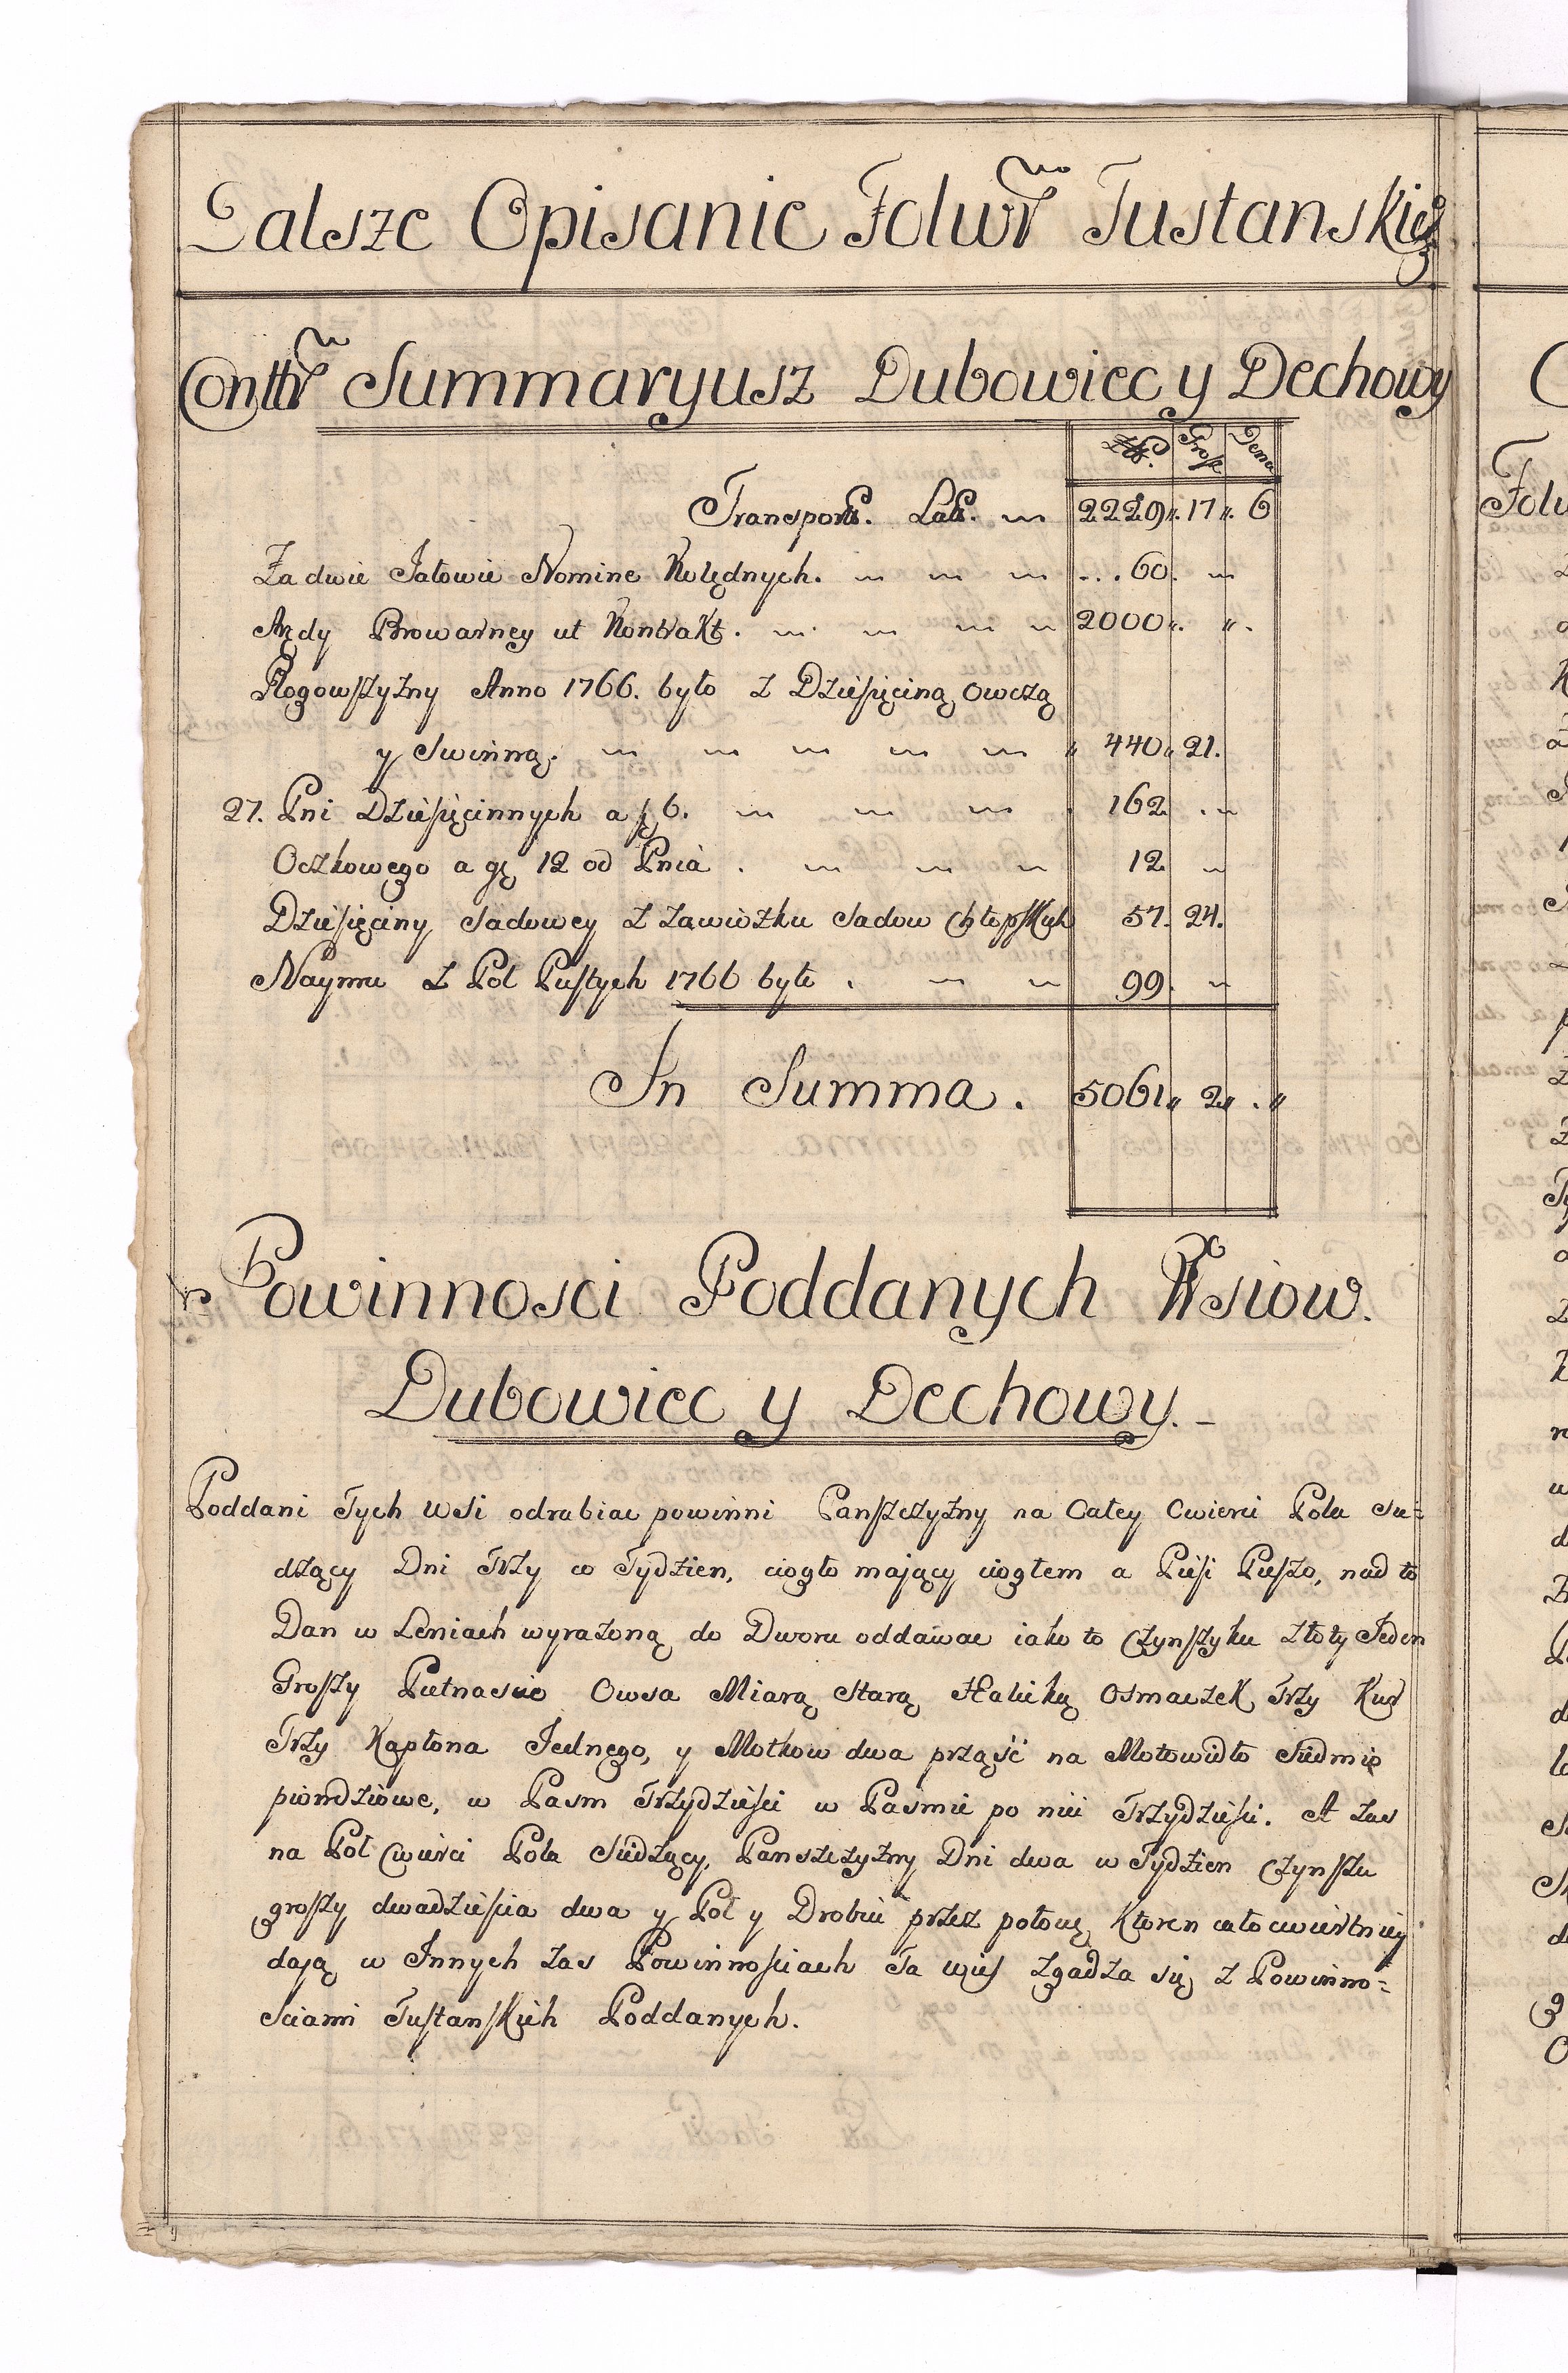 Dalsze Opisanie Folwr Tustanskieg
Conttr Summaryusz Dubowiec y Dechowy
Zł. Gross. Dena
Transport. Latt. 2229 „ 17 „ 6
Za dwie Jałowie Nomine Kolędnych. ... 60.
Arędy Browarney ut Kontrakt. 2000 „. „.
Rogowszyzny Anno 1766. było z Dziesięciną owczą
y Swinną. „ 440 „ 21.
27. Pni Dziesięcinnych a f 6. 162
Oczkowego a gę 12 od Pnia. 12
Dziesięciny Sadowey z zawiozku Sadow chłopskich 57. 24.
Naymu z Pol Pustych 1766 było. 99.
In Summa. 5061 „ 2 „ . „
Powinnosci Poddanych Wsiow.
Dubowiec y Dechowy. -
Poddani Tych Wsi odrabiac powinni Panszczyzny na Całey Cwierci Pola Sie-
dzący Dni Trzy w Tydzien, ciogło maiący ciogłem a Piesi Pieszo, nad to
Dan w Leniach wyrażoną do Dworu oddawac iako to Czynszyku złoty Jeden
Groszy Pietnascie Owsa Miarą Starą Halicką Osmaczek Trzy Kur
Trzy Kapłona Jednego, y Motkow dwa prząść na Motowidło Siedmio
piendziowe, w Pasm Trzydziesci w Pasmie po nici Trzydziesci. A zas
na Poł Cwierci Pola Siedzący, Panszczyzny Dni dwa w Tydzien Czynszu
groszy dwadziescia dwa y Poł y Drobiu przez połowę Ktoren całocwiertniey
daią w Innych zas Powinnosciach Ta wieś zgadza się z Powinno-
Sciami Tustanskich Poddanych.